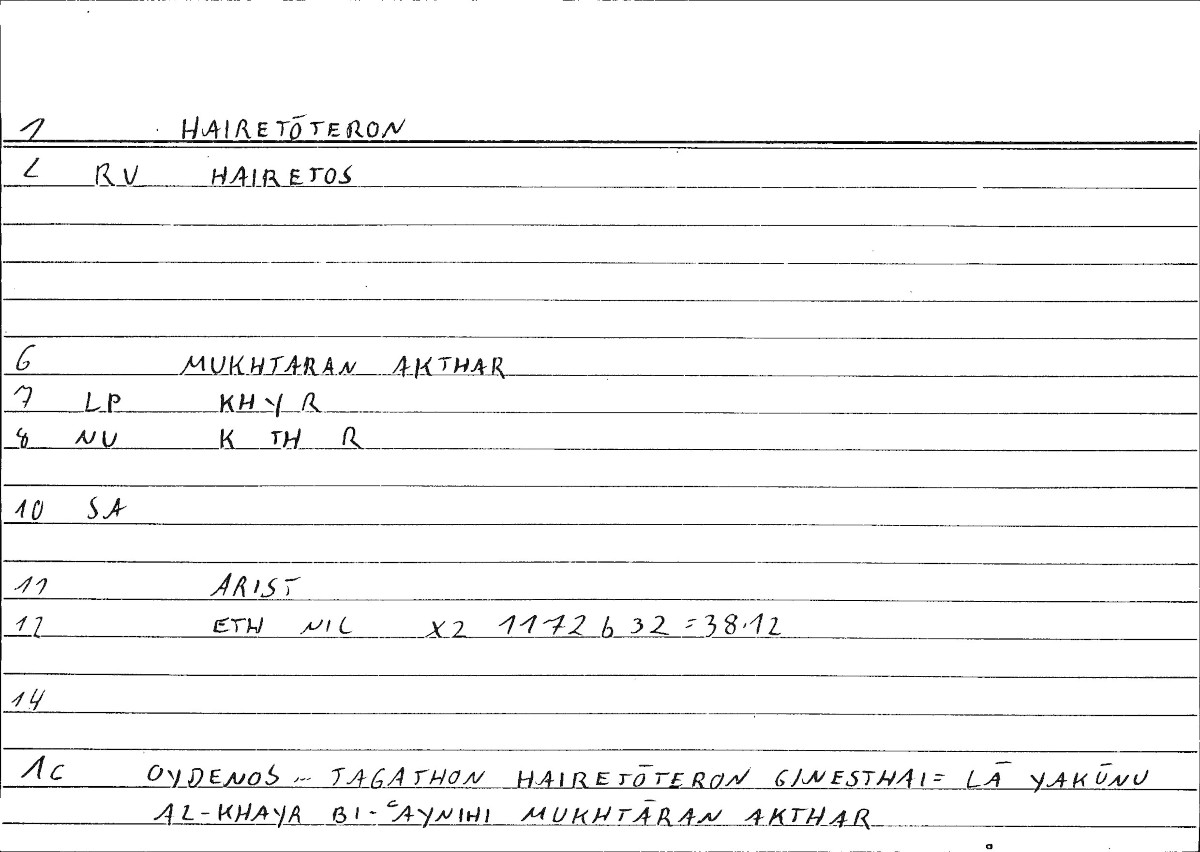 1 HAIRETŌTERON
2 RV HAIRETOS
6 MUKHTARAN AKTHAR
7 LP KHYR
8 NU K TH R
10 SA
11 ARIST
12 ETH NIC X2 1172 b 32 = 38.12
14
1c OYDENOS ... TAGATHON HAIRETŌTERON GINESTHAI = LĀ YAKŪNU
AL-KHAYR BI-ʿAYNIHI MUKHTĀRAN AKTHAR